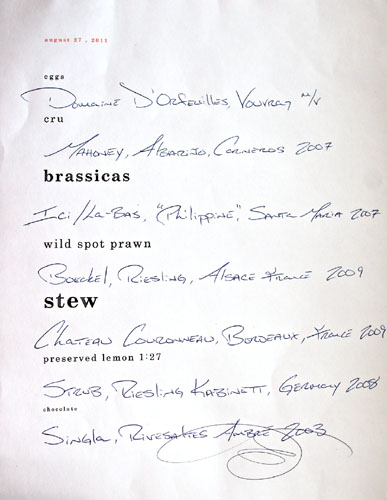 august 27, 2011
eggs
Domaine D'Orfeuilles, Vouvray N/V
cru
Mahoney, Albarijo, Carneros 2007
brassicas
Ici/La-Bas, "Philippine", Santa Maria 2007
wild spot prawn
Boeckel, Riesling, Alsace France 2009
stew
Chateau Couronneau, Bordeaux, France 2009
preserved lemon 1:27
Strub, Riesling Kabinett, Germany 2008
chocolate
Singla, Rivesaltes Ambré 2003